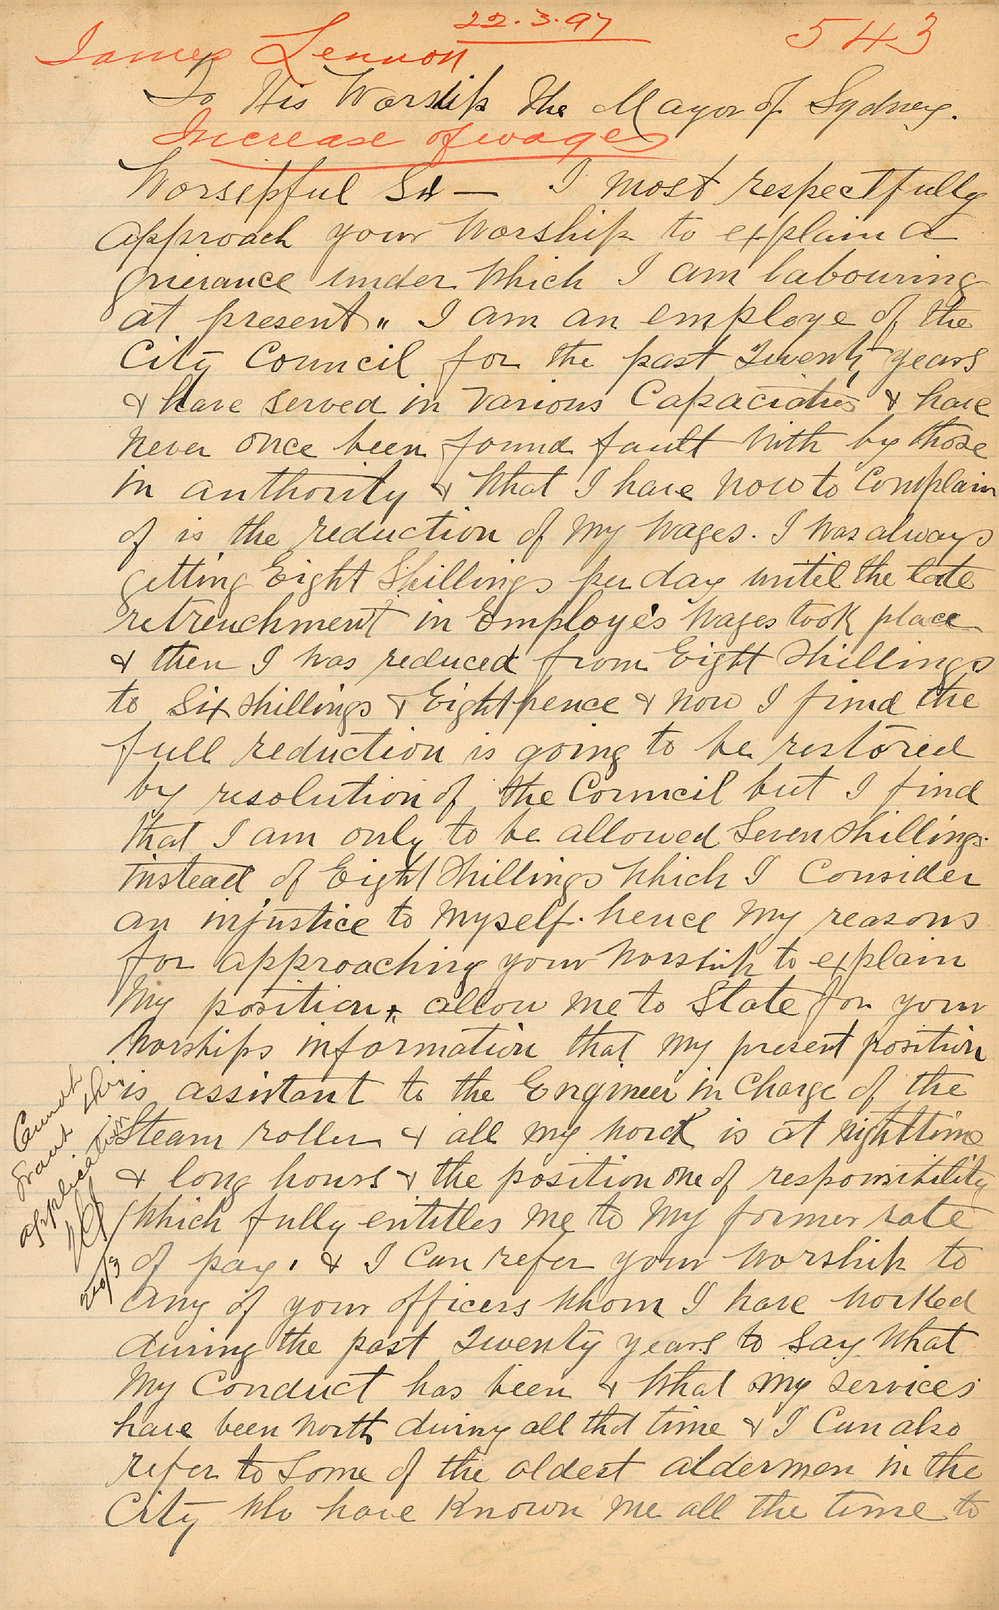 22.3.97
James Lennon
543
To His Worship the Mayor of Sydney.
Increase of wages
Worsipful Sir — I most respectfully
approach your Worship to explain a
grievance under which I am labouring
at present " I am an employe of the
City Council for the past Twenty years
& have served in various Capaciaties & have
never once been found fault with by those
in authority & what I have now to Complain
of is the reduction of my wages. I was always
getting Eight Shillings per day until the late
retrenchment in Employe's wages took place
& then I was reduced from Eight shillings
to six shillings & Eightpence & now I find the
full reduction is going to be restored
by resolution of the Council but I find
that I am only to be allowed Seven shillings
instead of Eight Shillings which I Consider
an injustice to myself. hence my reasons
for approaching your worship to explain
my position, allow me to State for your
worships information that my present position
is assistant to the Engineer in Charge of the
Steam roller & all my work is at nighttime
& long hours & the position one of responsibility
which fully entitles me to my former rate
of pay. & I Can refer your worship to
any of your officers whom I have worked
during the past Twenty years to say what
my Conduct has been & what my services
have been worth during all that time & I Can also
refer to some of the oldest aldermen in the
City who have Known me all the time to
Cannot
grant this
application
20/3